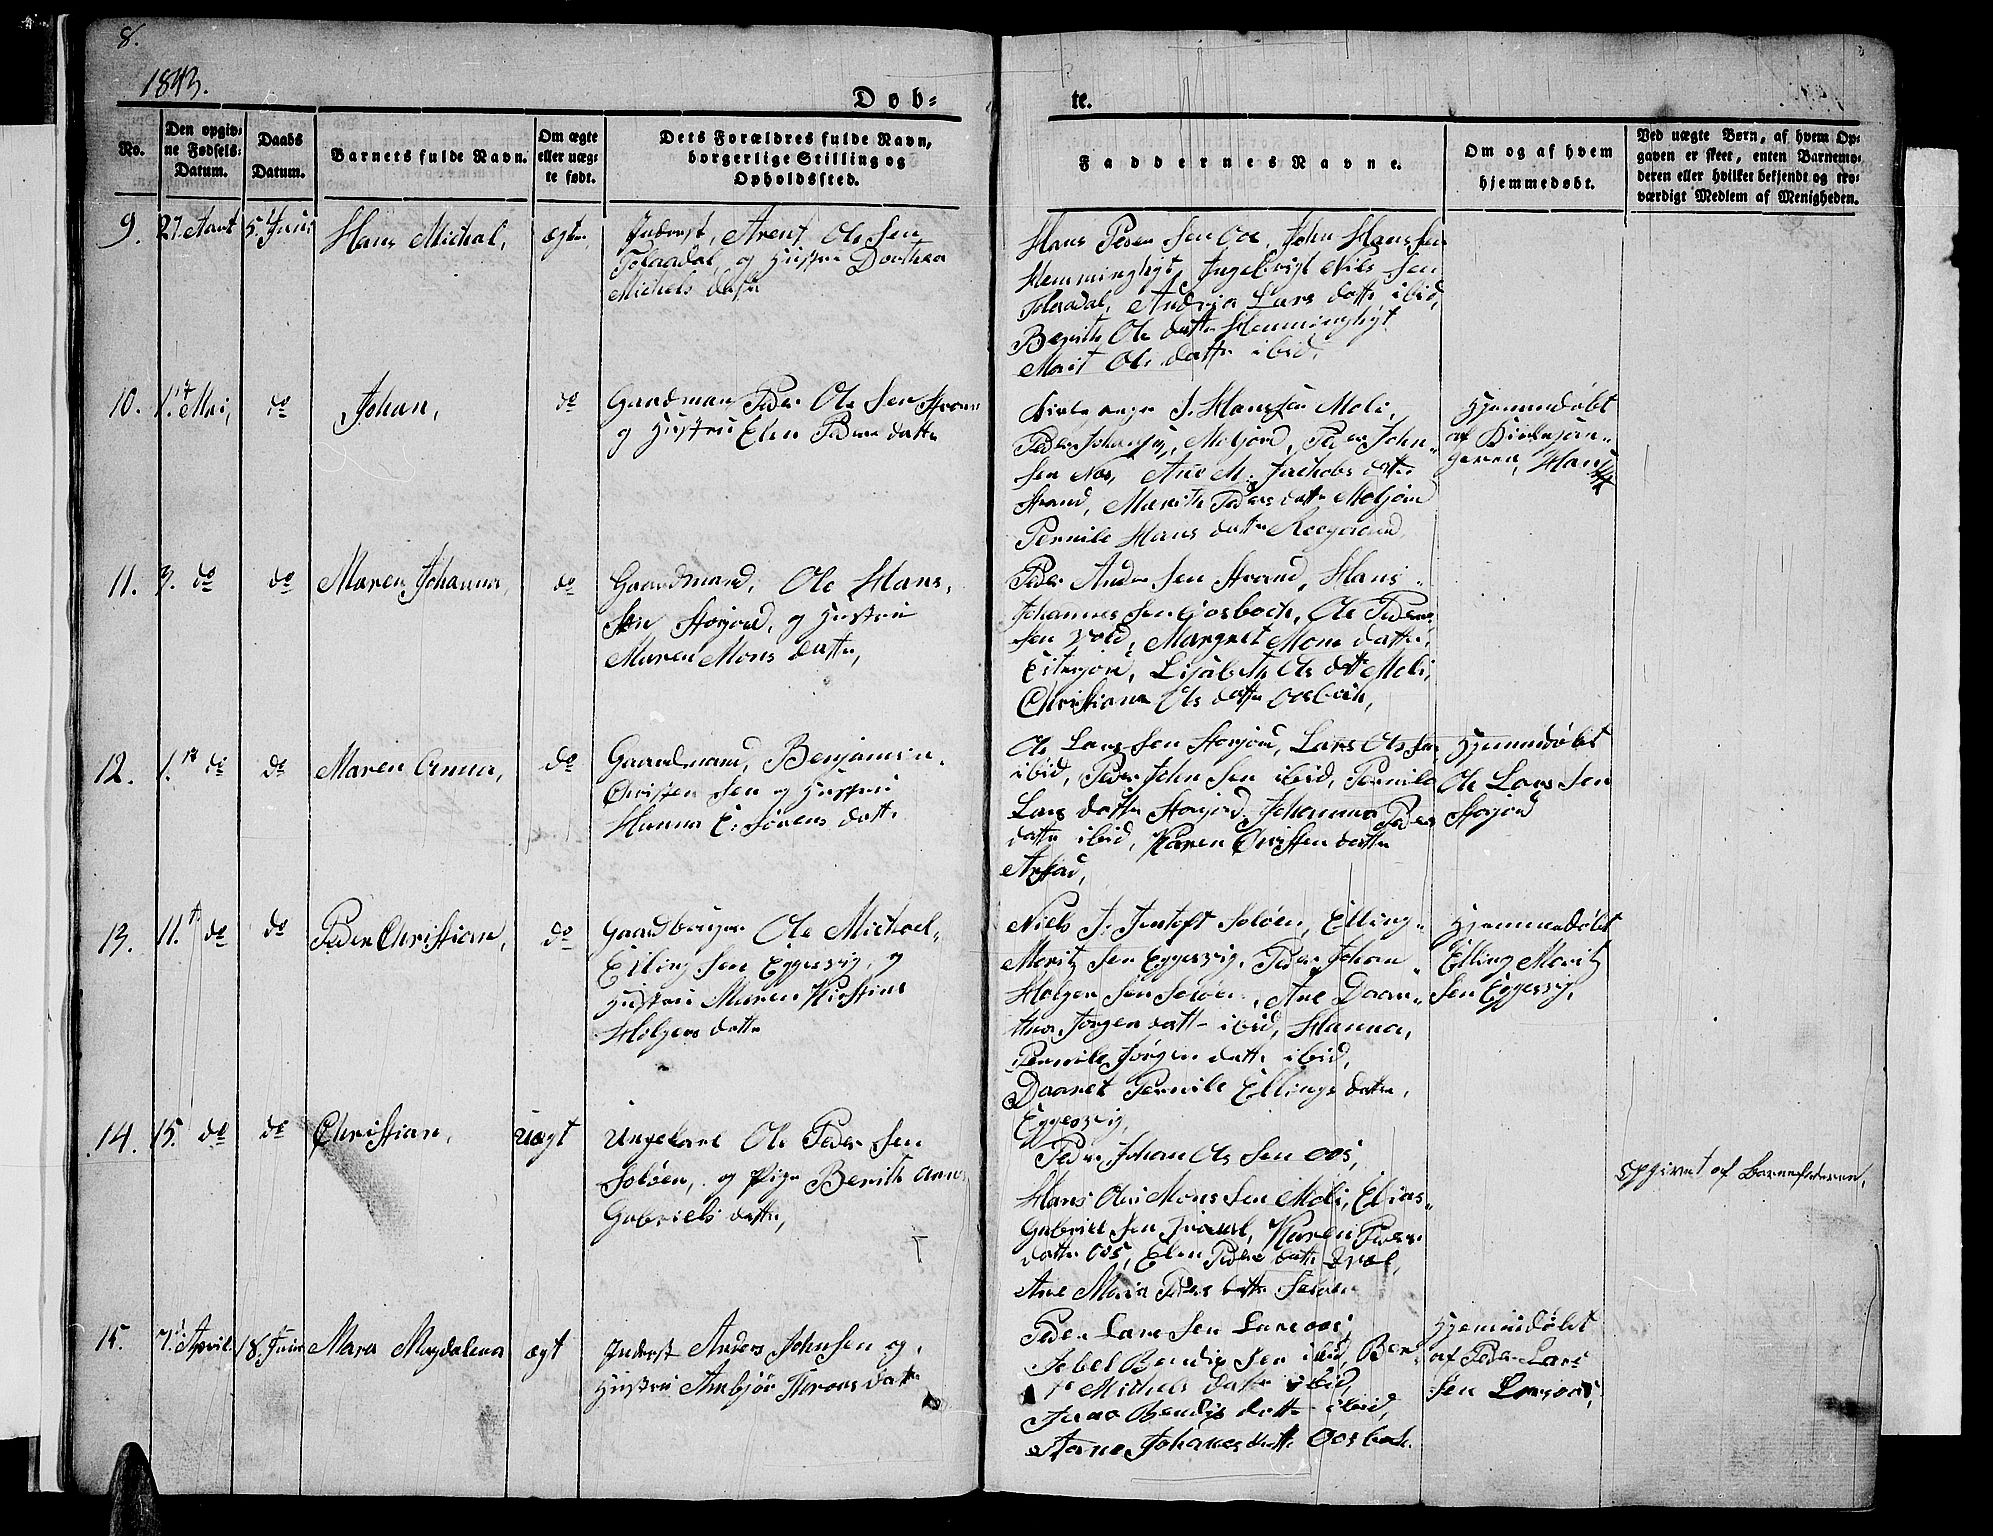 8.
1843.
Døb-
te.
No.
Den opgiv-
ne Fødsels-
Datum.
Daabs
Datum.
Barnets fulde Navn.
Om ægte
eller uæg-
te født.
Dets Forældres fulde Navn,
borgerlige Stilling og
Opholdssted.
Faddernes Navne.
Om og af hvem
hjemmedøbt.
Ved uægte Børn, af hvem Op-
gaven er skeet, enten Barnemo-
deren eller hvilket bekjendt og tro-
værdigt Medlem af Menigheden.
9.
27.
5. Juni
Hans Michal,
ægte
Inderst, Arent Ole Sen
og Hustru Dorthea
Michels datr
Hans Peder Sen Oos, John Hans Sen
Ingebrigt Nils Sen
Andrea Lars datter ibid,
Berith Ole datter
Marit Ole datter ibid,
10.
1. Mai,
do
Johan,
do
Gaardmand Peder Ole Sen
og Hustru Elen Peders datter
J. Hanssen Moli,
Peder Peder John-
sen Ane M. Jachobs datter
Strand, Marith Peders datter
Pernile Hans datter
Hjemmedøbt
af Kirkesan-
geren, Hans
11.
3. do
do
Maren Johanna,
do
Gaardmand, Ole Hans-
Sen Storjord, og Hustru
Maren Mons datter,
Peder Ander Sen Strand, Hans
Johannes Sen Ole Peder
Sen Margret Mons datter,
Lisabeth Ols datter Moli,
Christiane Ols datter Oosbach,
12.
1. do
do
Maren Anna,
do
Gaardmand, Benjamin
Christen Sen og Hustru
Hanna E: Sørens datter
Ole Lars Sen Storjord, Lars Ols Sen
ibid, Peder John Sen ibid, Pernile
Lars datter Storjord, Johanna Peders
datter ibid, Karen Christen datter
Arstad,
Hjemmedøbt
Ole Lars Sen
Storjord
13.
11. do
do
Peder Christian,
do
Gaardbruger Ole Michael
Elling Sen Eggesvig, og
Hustru Maren Kirstine
Holgers datter
Niels J: Jentoft Soløen, Elling
Moritz Sen Eggesvig, Peder Johan
Holger Sen Soløen, Ane Daar-
thea Jørgen datter ibid, Hanna,
Pernile Jørgen datter ibid,
Daaret Pernile Ellings datter,
Eggesvig,
Hjemmedøbt
Elling Moritz
Sen Eggesvig,
14.
15. do
do
Christian,
uægt
Ungekarl Ole Peder Sen
Soløen, og Pige Berith Anne
Gabriels datter,
Peder Johan Ols Sen Oos,
Hans Ole Mons Sen Moli, Elias
Gabriel Sen Karen Peders
datter Oos, Elen Peders datter
Ane Maria Peders datter Soløen
Opgivet af Barnefaderen,
15.
7. April
18. Juni
Maren Magdalena
ægt
Inderst Anders JohnSen og
Hustru Anbjør datr
Peder Lars Sen Larsoos,
Bendix Sen ibid, Ber-
Michels datter ibid,
Bendix datter ibid,
Johanes datter Oosbak.
Hjemmedøbt
af Peder Lars
Sen Larsoos,